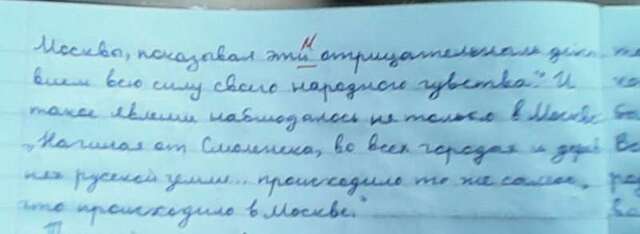 Москвы, показывал этим отрицательным дейст
вием всю силу своего народного чувства." И
такое явление наблюдалось не только в Москве
„Начиная от Смоленска, во всех городах и дерев
нях русской земли... происходило то же самое,
что происходило в Москве."